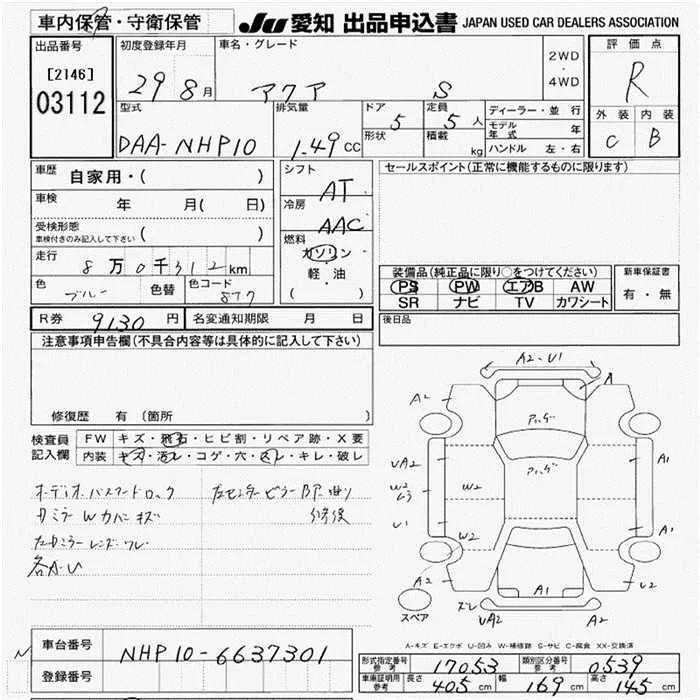 車内保管・守衛保管
JU 愛知 出品申込書 JAPAN USED CAR DEALERS ASSOCIATION
出品番号
[2146]
03112
初度登録年月
29 8月
車名・グレード
アクア S
2WD
・
4WD
評価点
R
外装 内装
C B
型式
DAA-NHP10
排気量
1.49 CC
ドア 5
形状
定員 5人
積載 kg
ディーラー・並行
モデル年式 年
ハンドル 左・右
車歴 自家用・( )
車検 年 月( 日)
受検形態
車検付きのみ記入して下さい ( )
走行 8万0千312km
色 ブルー 色替 色コード 877
シフト AT
冷房 AAC
燃料
ガソリン
・
軽・油
( )
セールスポイント(正常に機能するものに限ります)
装備品(純正品に限り○をつけてください)
PS PW エアB AW
SR ナビ TV カワシート
新車保証書
有・無
R券 9130円 名変通知期限 月 日
後日品
注意事項申告欄(不具合内容等は具体的に記入して下さい)
修復歴 有 〔箇所 〕
検査員記入欄
FW キズ・飛石・ヒビ割・リペア跡・X要
内装 キズ・汚レ・コゲ・穴・スレ・キレ・破レ
オーディオパスワードロック
左センターピラーBP曲り
修復
カミラWカバーキズ
左Dミラーレンズワレ
各A・U
A2・U1
A2
A
UA2
W2
ムラ
U1
W2
W2
A1
A1
A2
A1
U2
スペア
スレ
UA2
A2
A-キズ E-エクボ U-凹み W-補修跡 S-サビ C-腐食 XX-交換済
車台番号 NHP10-6637301
登録番号
N
形式指定番号 参考 17053 類別区分番号 参考 0539
車庫証明用 参考 長さ 405 cm 幅 169 cm 高さ 145 cm